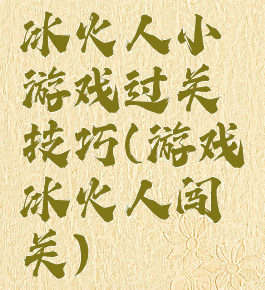 冰火人小
游戏过关
技巧(游戏
冰火人闯
关)